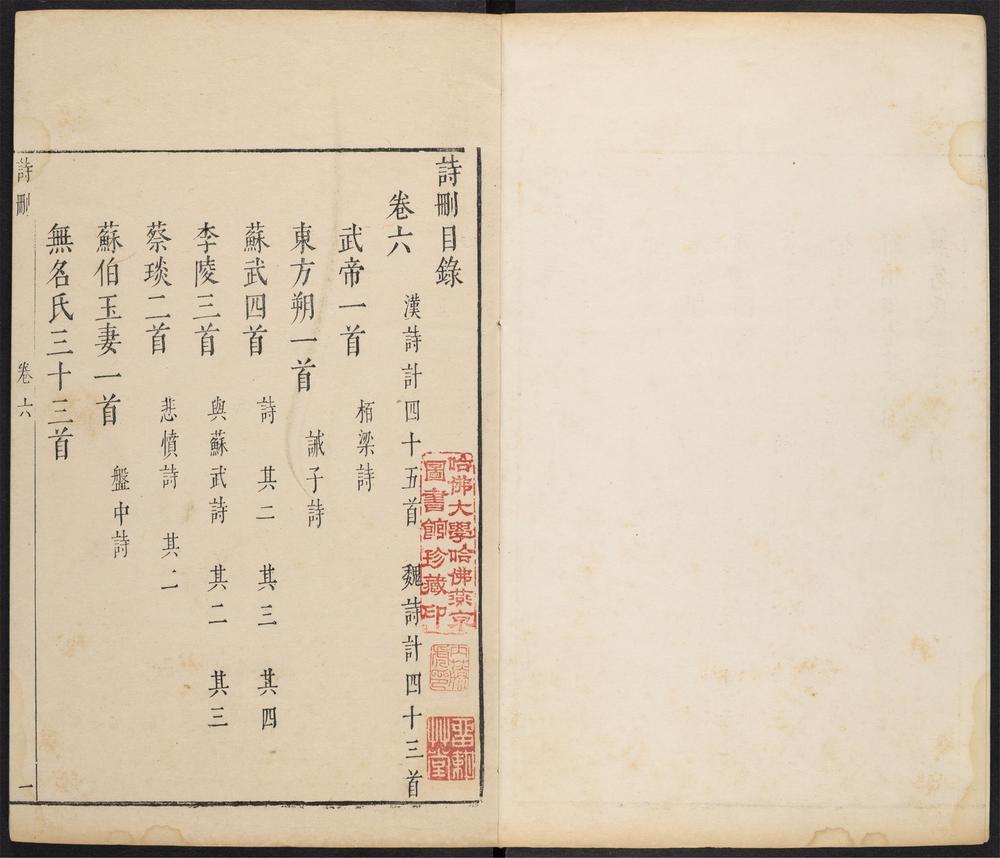 詩刪目錄
卷六
漢詩計四十五首　魏詩計四十三首
武帝一首　栢梁詩
東方朔一首　誡子詩
蘇武四首　詩　其二　其三　其四
李陵三首　與蘇武詩　其二　其三
蔡琰二首　悲憤詩　其二
蘇伯玉妻一首　盤中詩
無名氏三十三首
詩刪　卷六　一
哈佛大學哈佛燕京
圖書館珍藏印